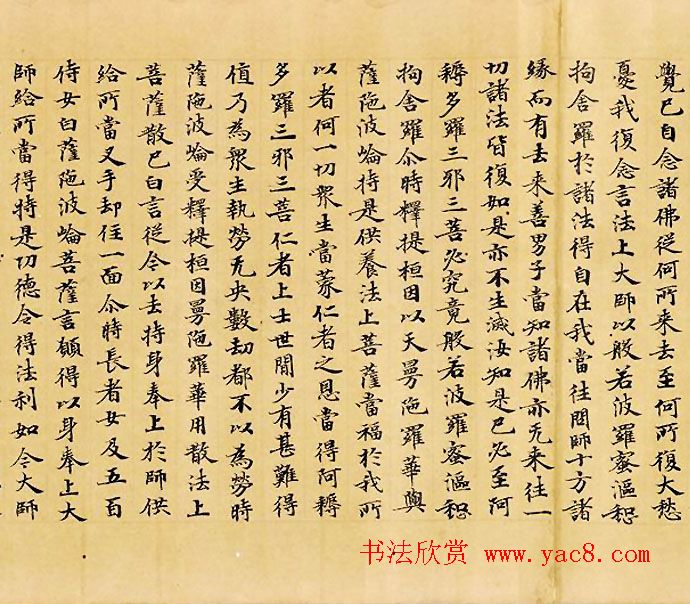 覺已自念諸佛從何所來去至何所復大愁
憂我復念言法上大師以般若波羅蜜漚惒
拘舍羅於諸法得自在我當往問師十方諸
緣而有去來善男子當知諸佛亦无來往一
切諸法皆復如是亦不生滅汝知是已必至阿
耨多羅三邪三菩必究竟般若波羅蜜漚惒
拘舍羅尒時釋提桓因以天曼陁羅華與
薩陁波崘持是供養法上菩薩當福於我所
以者何一切衆生當蒙仁者之恩當得阿耨
多羅三邪三菩仁者上士世間少有甚難得
值乃為衆生執勞无央數劫都不以為勞時
薩陁波崘受釋提桓因曼陁羅華用散法上
菩薩散已白言從今以去持身奉上於師供
給所當叉手却住一面尒時長者女及五百
侍女白薩陁波崘菩薩言願得以身奉上大
師給所當得持是功德令得法利如今大師
书法欣赏 www.yac8.com